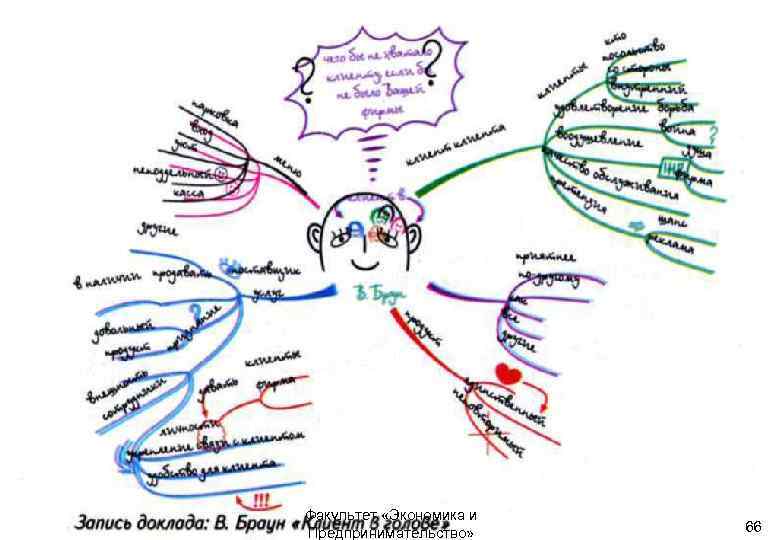 чего бы не хватало
клиенту, если бы
не было Вашей
фирмы
парковка
вход
уют
неподдельный
касса
меню
клиент клиента
клиенты
кто
посольство
со стороны
внутренний
удовлетворение
борьба
воодушевление
война
?
душа
качество обслуживания
фирма
претензия
шанс
реклама
клиент в
В. Браун
другие
в наличии
продавать
поставщик
услуг
довольный
продукт
признание
?
внешность
сотрудники
давать
клиенты
фирма
личности
укрепление связи с клиентом
удобство для клиента
!!!
приятнее
по другому
как
все
другие
продукт
единственный
неповторимый
Запись доклада: В. Браун «Клиент в голове»
Факультет «Экономика и
Предпринимательство»
66